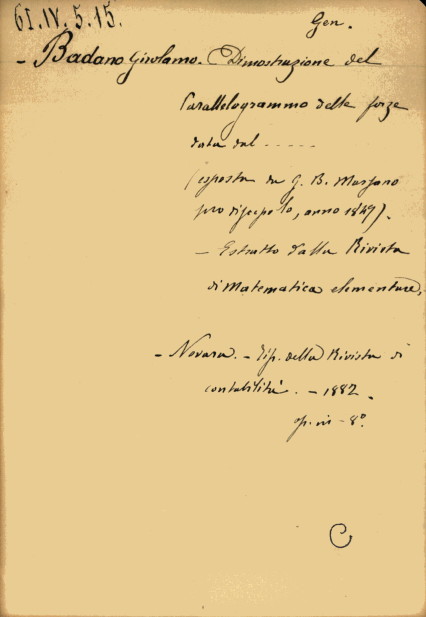 61.IV.5.15.
Gen.
- Badano Girolamo. Dimostrazione del
Parallelogrammo delle forze
data dal -----
(esposta da G. B. Marsano
pro discepolo, anno 1849).
- Estratto dalla Rivista
di Matematica elementare,
- Novara. - Tip. della Rivista di
contabilità. - 1882.
op. in - 8°.
C